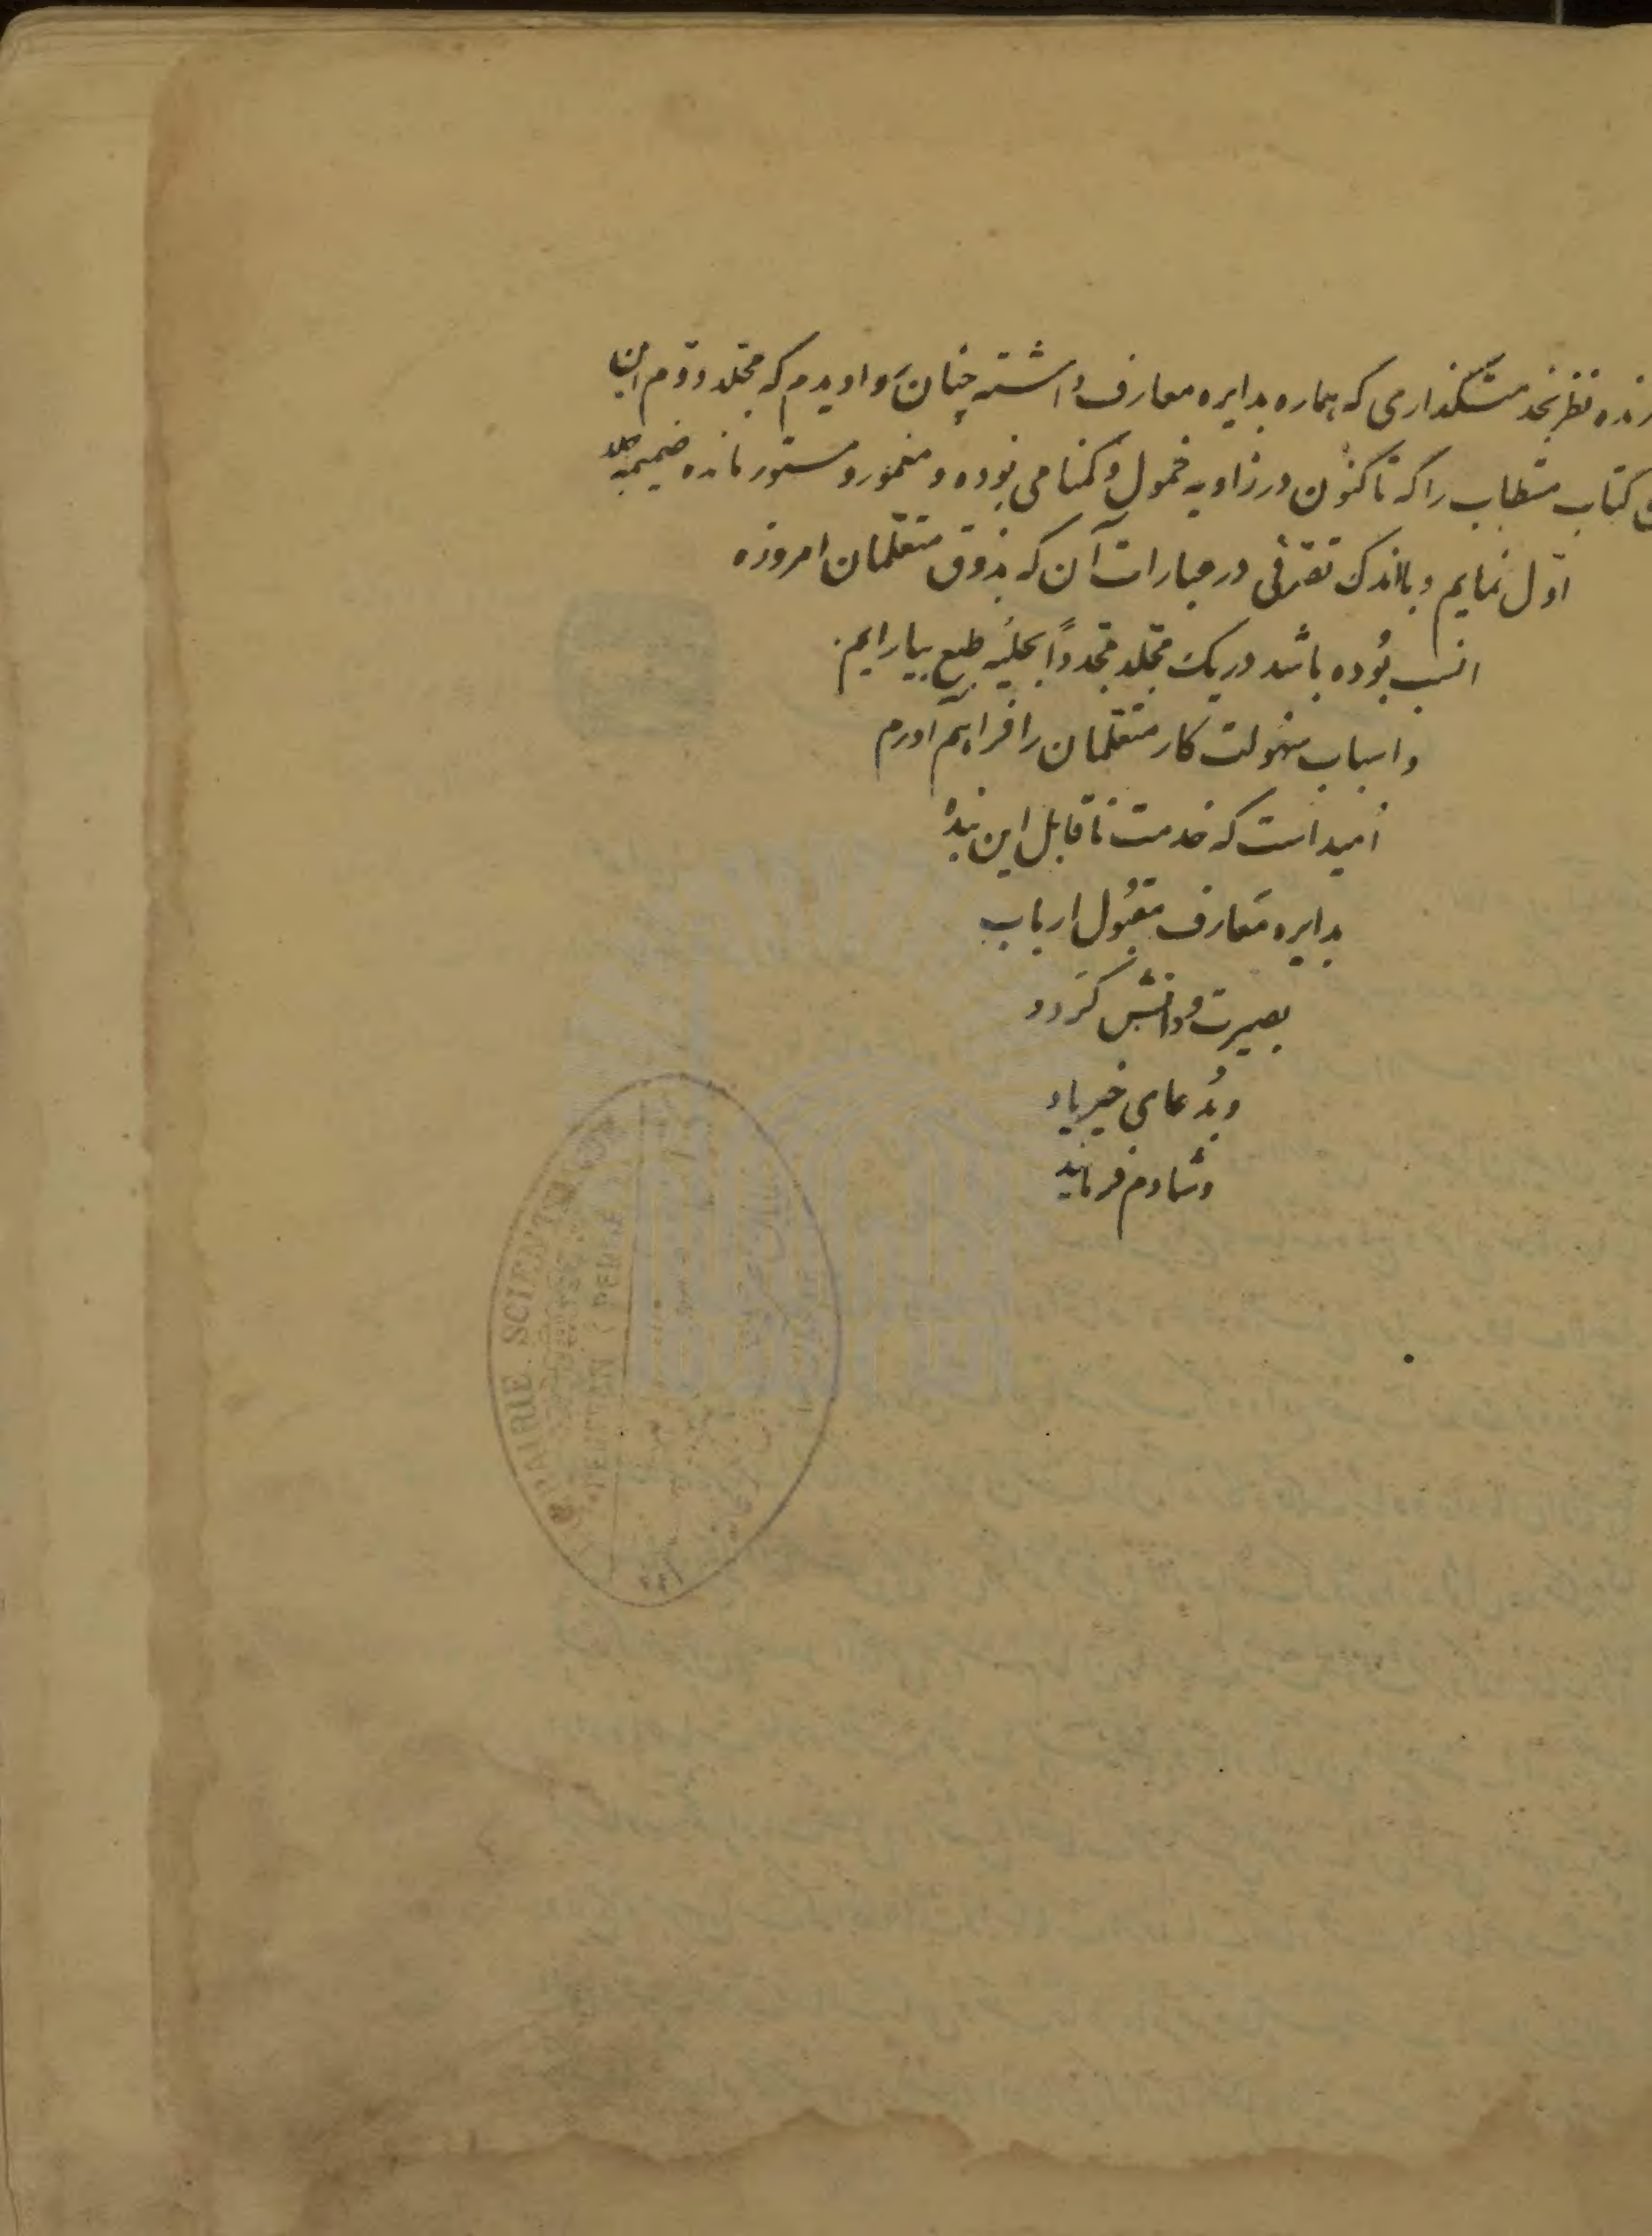 نظر بخدمتگذاری که هماره بدایره معارف داشته چنان روا دیدم که مجلد دوم این
کتاب مستطاب را که تا کنون در زاویه خمول و گمنامی بوده و مغمور و مستور مانده ضمیمه جلد
اوّل نمایم و با اندک تصرّفی در عبارات آن که بذوق متعلّمان امروزه
انسب بُوده باشد در یک مجلّد مجدداً بحلیه طبع بیارایم.
و اسباب سهولت کار متعلمان را فراهم آورم
اُمید است که خدمت ناقابل این بنده
بدایره مَعارف مقبُول ارباب
بصیرت و دانش گردد
و بدُعای خیر یاد
و شادم فرمایند
LIBRAIRIE SCIENT
TÉHÉRAN (PERSE)